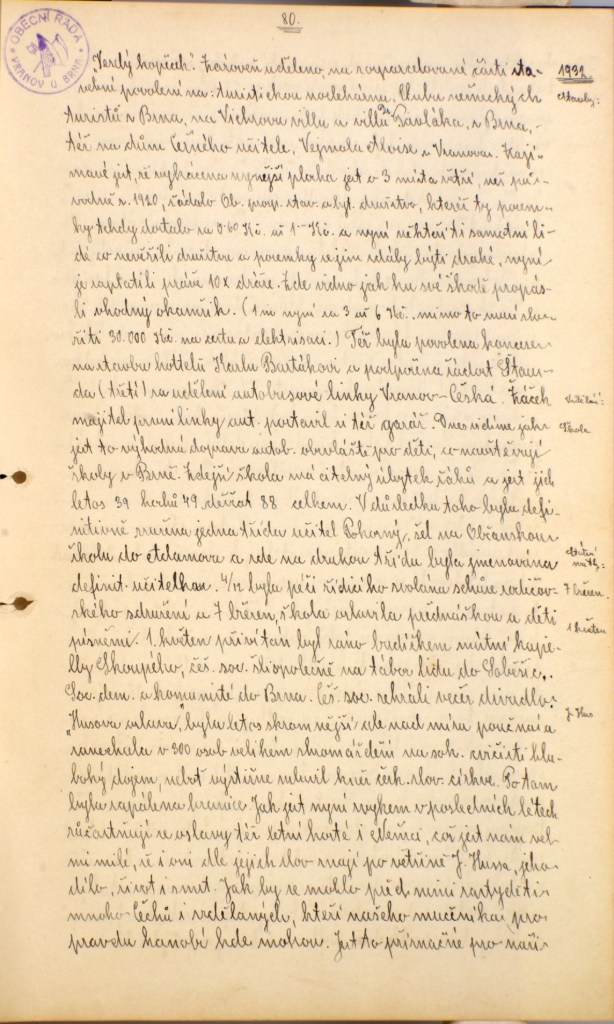 80.
OBECNÍ RADA
VRANOV U BRNA
1932.
„Veselý kopeček". Zároveň uděleno, na rozparcelované části sta-
Stavby:
vební povolení na: turistickou noclehárnu, Clubu německých
turistů z Brna, na Víchrovu villu a villu Dr Pavláka, z Brna,
též na dům Černého učitele, Vejmola Aloise z Vranova. Zají-
mavé jest, že vykrácena nynější plocha jest o 3 místa větší, než pů-
vodně r. 1920, žádalo Ob. prosp. stav. a byt. družstvo, kteréž ty pozem-
ky tehdy dostalo za 0·60 Kč. až 1·- Kč. a nyní někteří ti samotní li-
dé co nevěřili družstvu a pozemky se jim zdály býti drahé, nyní
je zaplatili práve 10x dráže. Zde vidno jak ku své škodě propás-
li vhodný okamžik. (1m nyní za 3 až 6 Kč. mimo to musí slo-
žiti 30.000 Kč. na cestu a elektrisaci.) Též byla povolena koncese
na stavbu hottelů Karlu Bartákovi a podpořena žádost Stan-
da (třetí) za udělení autobusové linky Vranov-Česká. Žáček
majitel první linky aut. postavil si též garáž. Dnes vidíme jak
Vzdělání:
jest to výhodná doprava autob. obzvláště pro děti, co navštěvují
Škola
školy v Brně. Zdejší škola má citelný úbytek žáků a jest jich
letos 39 hochů 49 děvčat 88 celkem. V důsledku toho byla defi-
nitivně zrušena jedna třída učitel Pokorný, šel na Občanskou
školu do Adamova a zde na druhou třídu byla jmenována
definit. učitelka. 4/12 byla péčí řídícího svolána schůze rodičov-
ského sdružení a 7 březen, škola oslavila přednáškou a dětí
7 březen.
písněmi. 1. květen přivítán byl ráno budíčkem místní kape-
1 květen
lly Skoupého, čes. soc. šli společně na tábor lidu do Soběšic,
Soc. dem. a komunité do Brna. Čes. soc. sehráli večer divadlo.
„Husova oslava", byla letos skromnější ale nad míru poučná a
J. Hus
zanechala v 300 osob velikém shromáždění na sok. cvičišti hlu-
boký dojem, neboť výstižne mluvil kněz čsk. slov. církve. Po tom
byla zapálena hranice. Jak jest nyní zvykem v posledních létech
zúčastňují se oslavy též letní hosté i Němci, což jest nám vel-
mi milé, že i oni dle jejich slov znají povětšině J. Hussa, jeho
dílo, život i smrt. Jak by se mohlo před nimi zastyděti
mnoho Čechů i vzdělaných, kteří našeho mučníka pro
pravdu hanobí kde mohou. Jest to příznačné pro naši